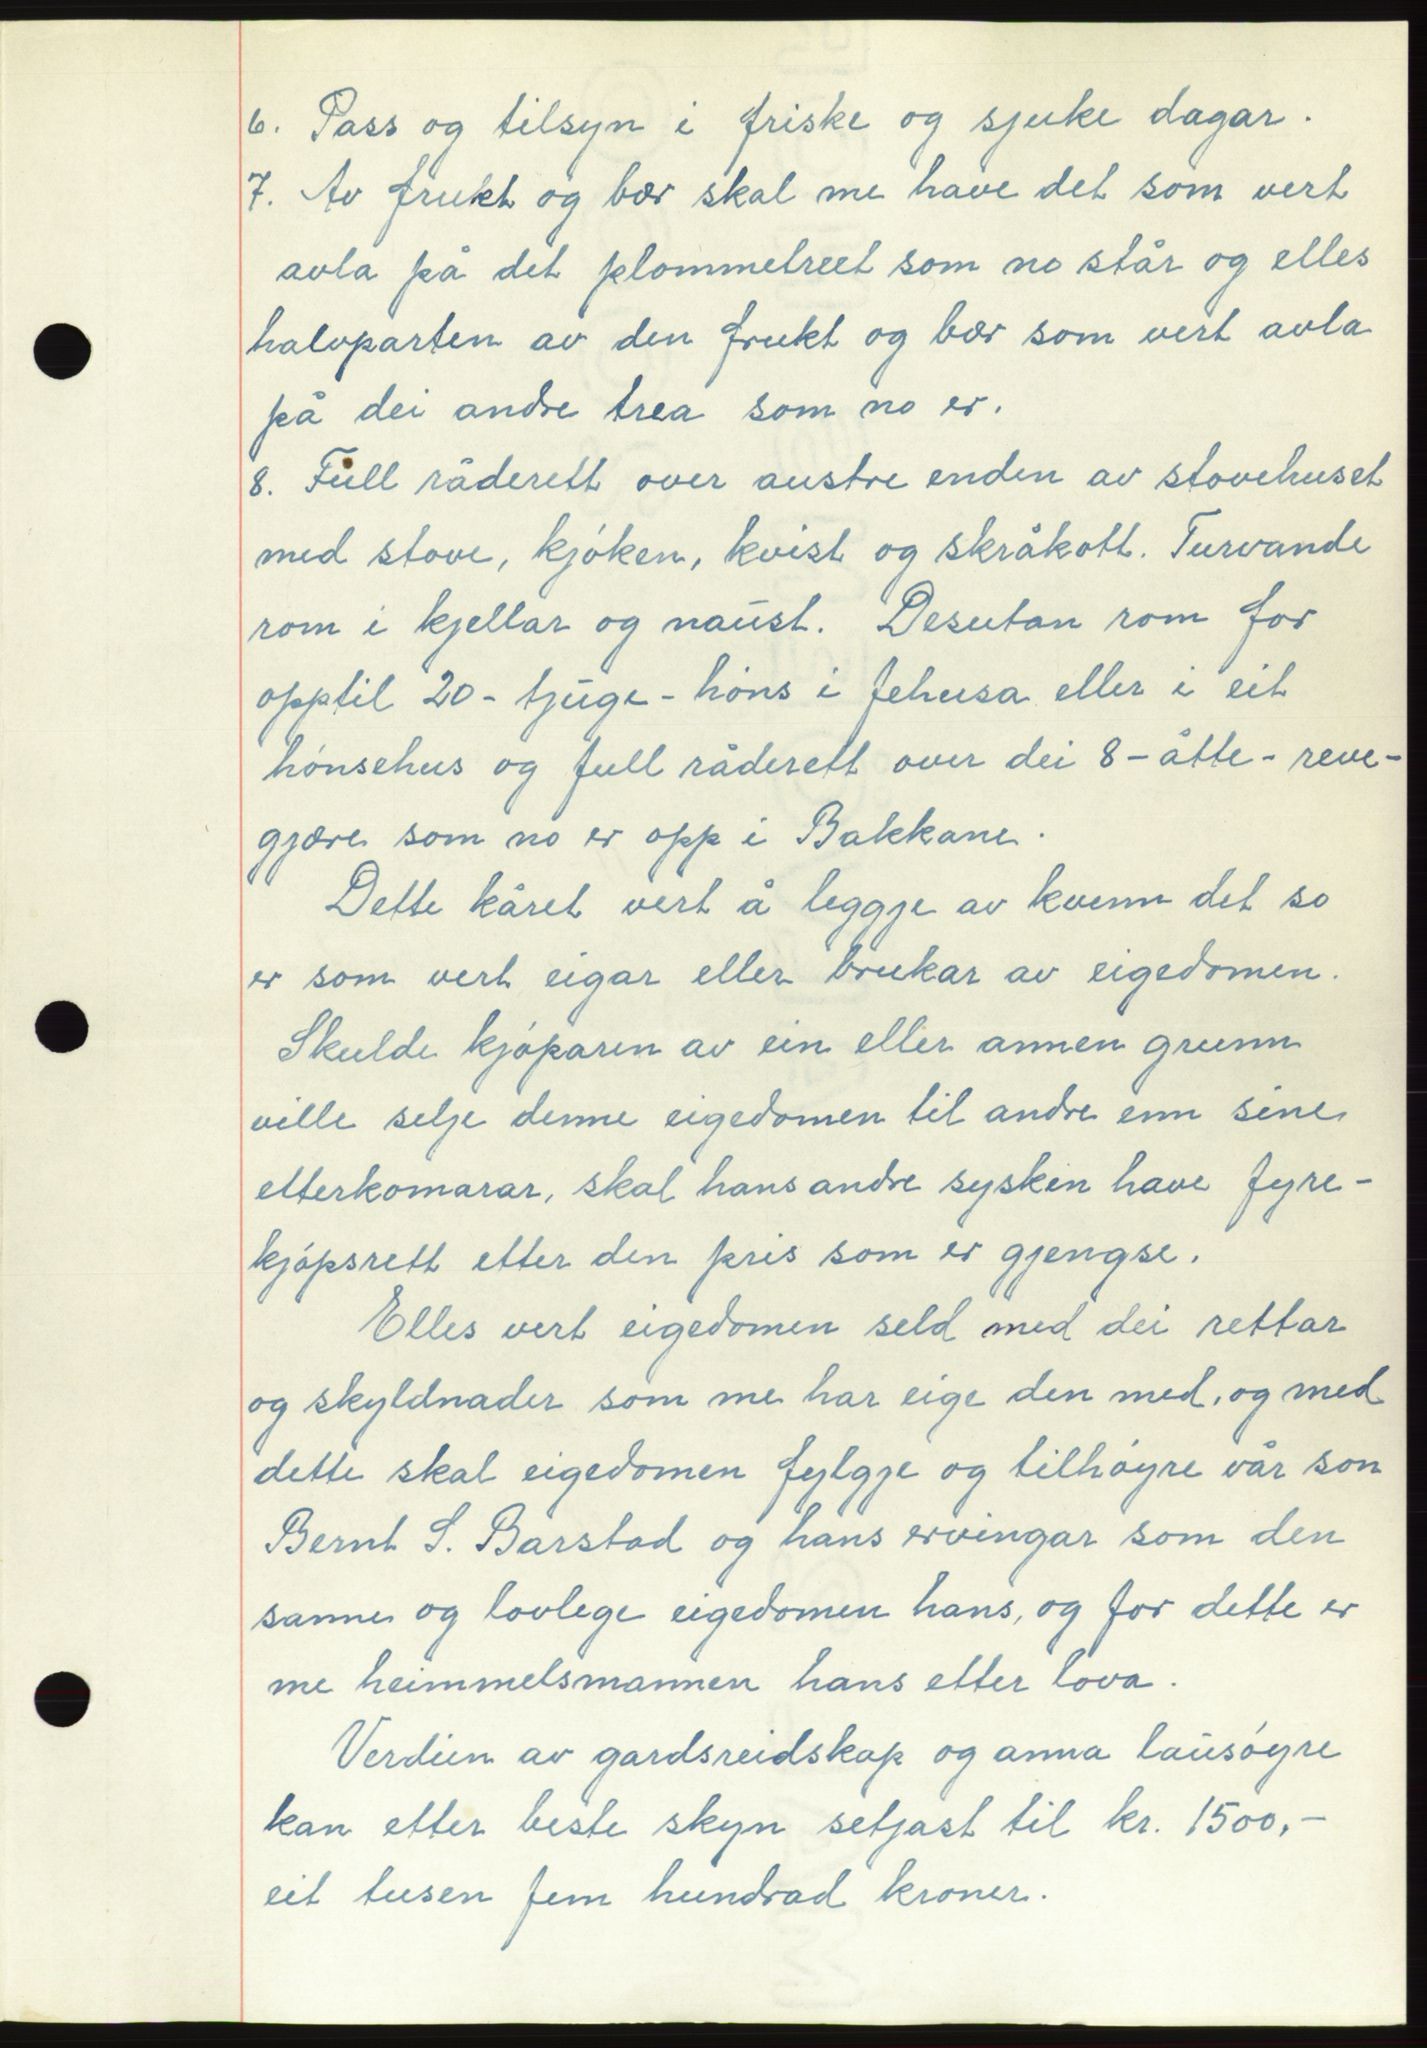 6. Pass og tilsyn i friske og sjuke dagar.
7. Av frukt og bær skal me have det som vert
avla på det plommetreet som no står og elles
halvparten av den frukt og bær som vert avla
på dei andre trea som no er.
8. Full råderett over austre enden av stovehuset
med stove, kjóken, kvist og skråkott. Turvande
rom i kjellar og naust. Desutan rom for
opptil 20 - tjuge - hóns i fehusa eller i eit
hónsehus og full råderett over dei 8 - åtte - reve-
gjære som no er opp i Bakkane.
Dette kåret vert å leggje av kvenn det so
er som vert eigar eller brukar av eigedomen.
Skulde kjóparen av ein eller annen grunn
ville selje denne eigedomen til andre enn sine
etterkomarar, skal hans andre sysken have fyre-
kjópsrett etter den pris som er gjengse.
Elles vert eigedomen seld med dei rettar
og skyldnader som me har eige den med, og med
dette skal eigedomen fylgje og tilhóyre vår son
Bernt S. Barstad og hans ervingar som den
sanne og lovlege eigedomen hans, og for dette er
me heimmelsmannen hans etter lova.
Verdien av gardsreidskap og anna lausóyre
kan etter beste skyn setjast til kr. 1500,-
eit tusen fem hundrad kroner.